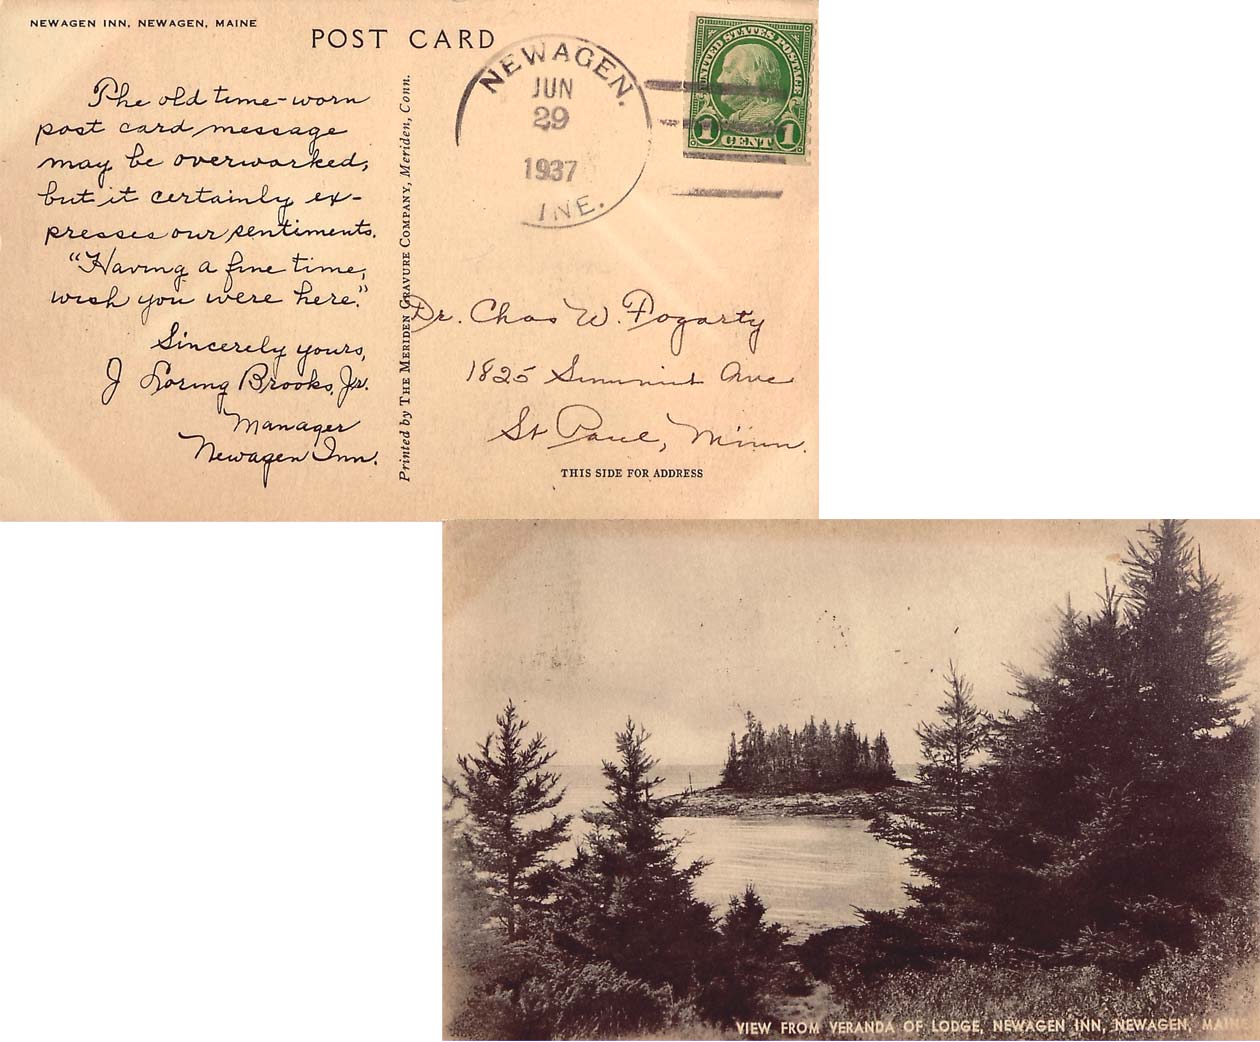 NEWAGEN INN, NEWAGEN, MAINE
POST CARD
The old time-worn
post card message
may be overworked,
but it certainly ex-
presses our sentiments.
"Having a fine time,
wish you were here."
Sincerely yours,
J Loring Brooks, Jr.
Manager
Newagen Inn.
Printed by THE MERIDEN GRAVURE COMPANY, Meriden, Conn.
NEWAGEN.
JUN
29
1937
INE.
UNITED STATES POSTAGE
1 CENT 1
Dr. Chas W. Fogarty
1825 Summit Ave
St Paul, Minn.
THIS SIDE FOR ADDRESS
VIEW FROM VERANDA OF LODGE, NEWAGEN INN, NEWAGEN, MAINE